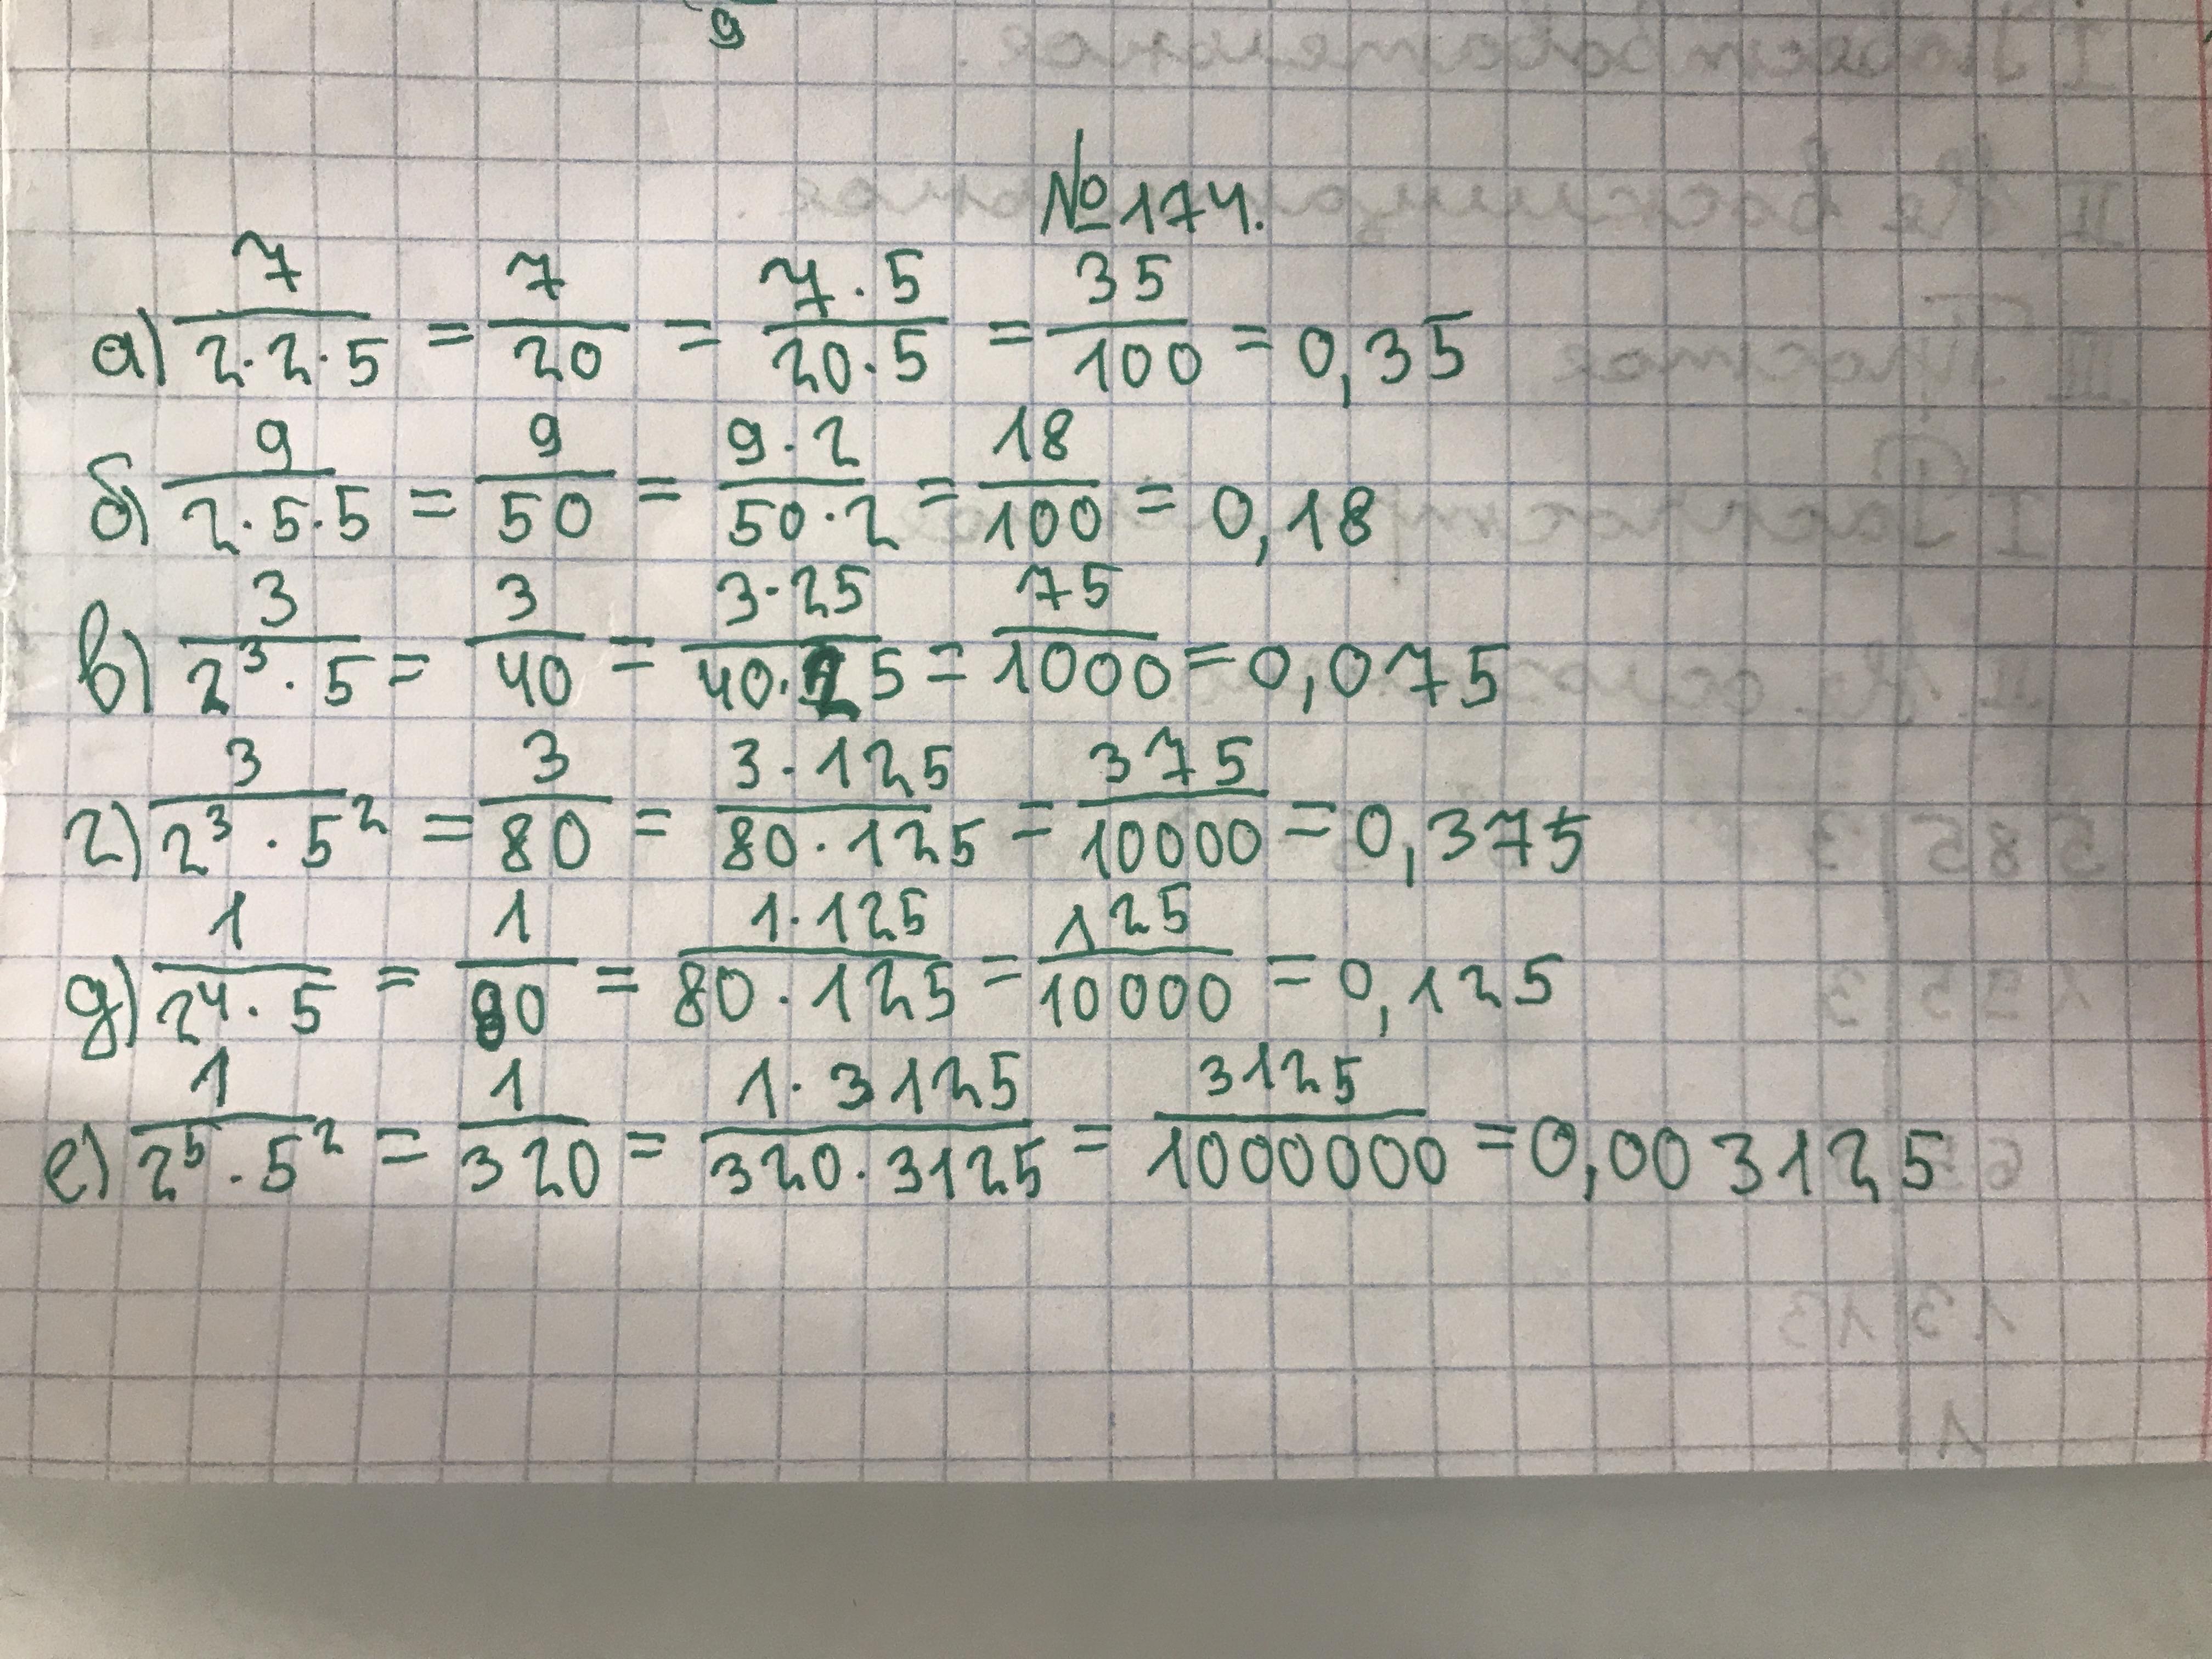 9
№174.
а) 7/(2·2·5) = 7/20 = (7·5)/(20·5) = 35/100 = 0,35
б) 9/(2·5·5) = 9/50 = (9·2)/(50·2) = 18/100 = 0,18
в) 3/(2³·5) = 3/40 = (3·25)/(40·25) = 75/1000 = 0,075
г) 3/(2³·5²) = 3/80 = (3·125)/(80·125) = 375/10000 = 0,375
д) 1/(2⁴·5) = 1/80 = (1·125)/(80·125) = 125/10000 = 0,125
е) 1/(2⁵·5²) = 1/320 = (1·3125)/(320·3125) = 3125/1000000 = 0,003125